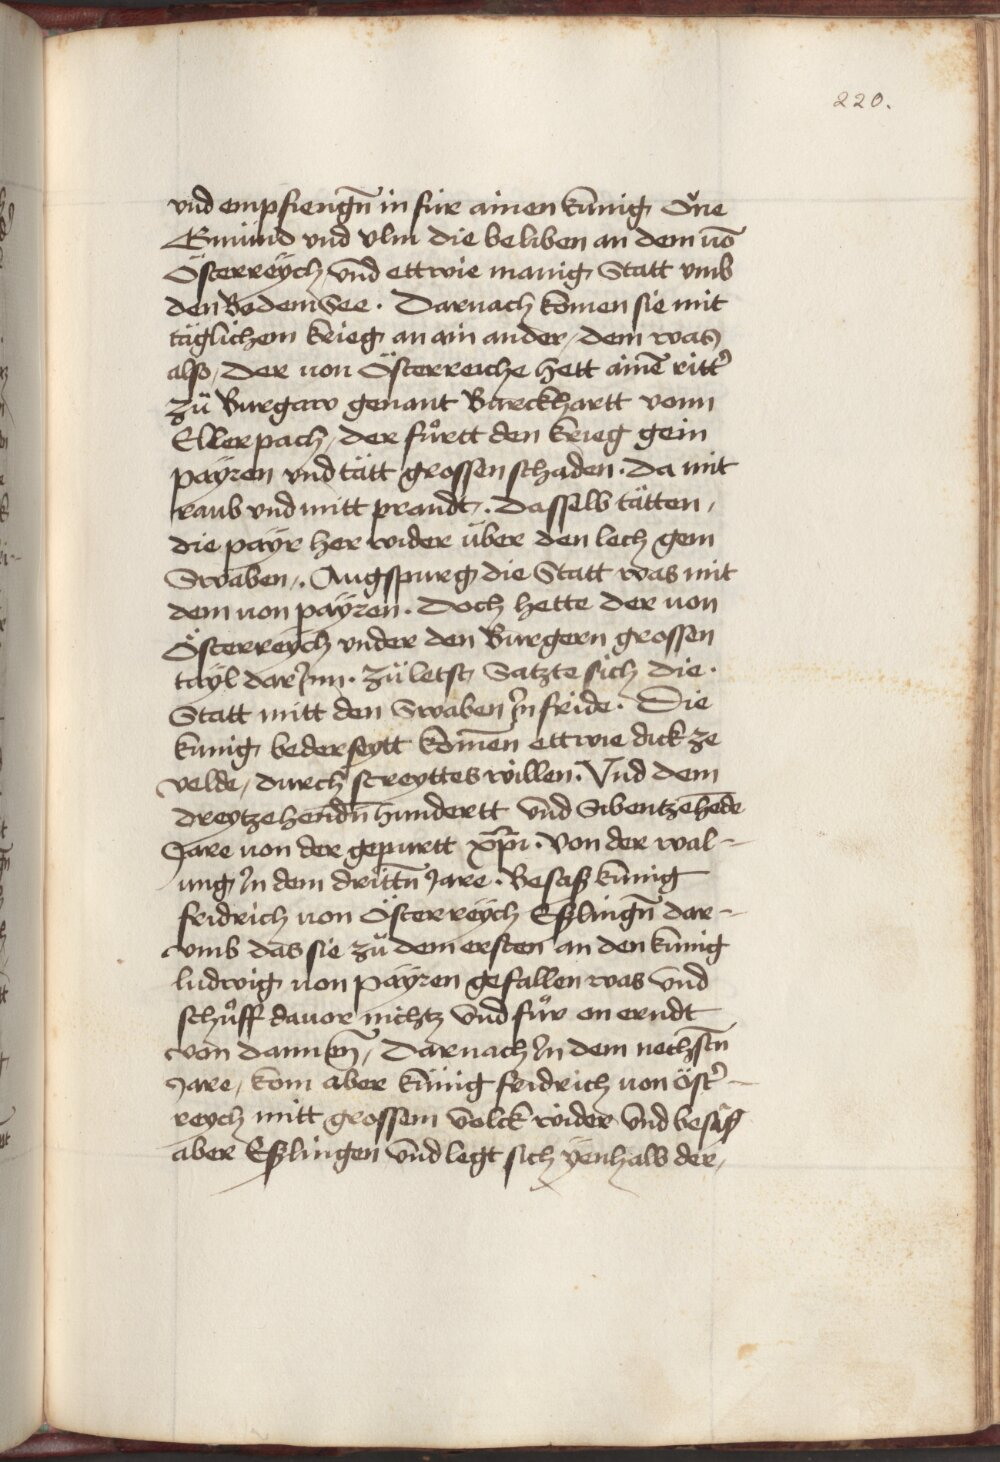 220.
vnd empfiengn̄ in für ainen künig Öne
Gmünd vnd vlm die beliben an dem vō
Österreÿch vnd ettwie manig Statt vmb
den Bodem See . Darnach komen sie mit
täglichem krieg an ain ander / dem was
also / der von Österreiche hett ainē ritt͛
zů Burgaw genant Burckhartt vonn
Ellerpach / der fůrtt den krieg gein
paÿren vnd tätt grossen schaden . Da mit
raub vnd mitt prandt / . dasselb tätten /
die paÿr her wider über den lech gem
Swaben / . Augspurg die Statt was mit
dem von paÿren . Doch hette der von
Österreÿch vnder den Burgern grossen
taÿl dar Inn . zů letst Satzte sich die .
Statt mitt den Swaben In fride . Die
künig bederseÿtt komen ettwie dick ze
velde / durch streyttes willen . Vnd dem
dreÿtzehendn̄ hundertt vnd Sibentzehēde
Jare von der gepurtt xp̄i . von der wal -
ung In dem drittn̄ Jare . Besaß künig
fridrich von Österreÿch Eßlingn̄ dar -
vmb das sie zů dem ersten an den künig
ludwig von paÿren gefallen was vnd
schůff dauor nichtz vnd fůr on erndt
von dannen / Darnach In dem nechstn̄
Jare / kom aber künig fridrich von öst͛ -
reych mitt grossem volck wider vnd besaß
aber Eßlingen vnd legt sich ÿenhalb der /